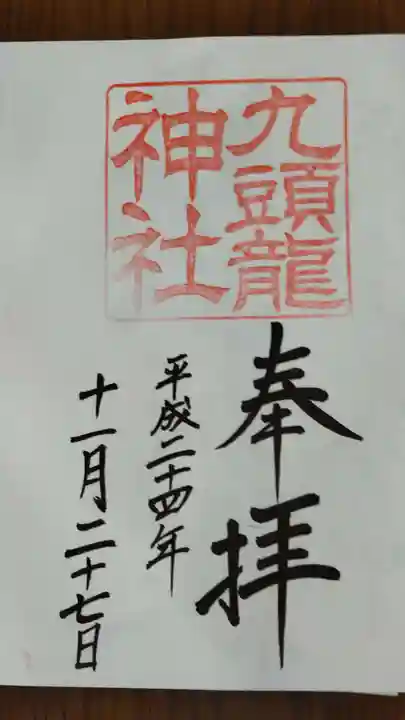 九頭龍
神社
奉拝
平成二十四年
十一月二十七日